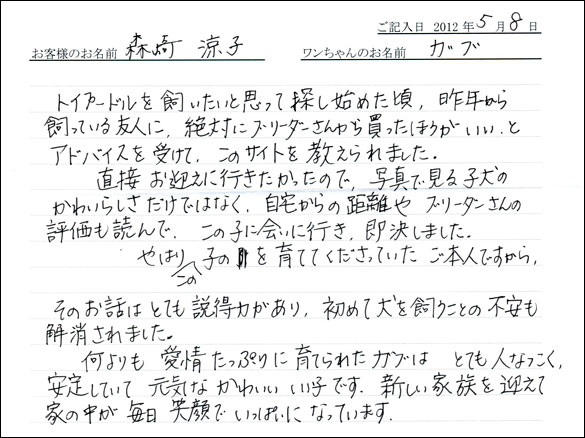 ご記入日 2012年5月8日
お客様のお名前 森崎 涼子 ワンちゃんのお名前 ガブ
トイプードルを飼いたいと思って探し始めた頃，昨年から
飼っている友人に，絶対にブリーダーさんから買ったほうがいい，と
アドバイスを受けて，このサイトを教えられました。
直接お迎えに行きたかったので，写真で見る子犬の
かわいらしさだけではなく，自宅からの距離やブリーダーさんの
評価も読んで，この子に会いに行き，即決しました。
やはり 子の を育ててくださっていたご本人ですから，
この
そのお話はとても説得力があり，初めて犬を飼うことの不安も
解消されました。
何よりも愛情たっぷりに育てられたガブは とても人なつこく，
安定していて元気なかわいいいい子です。新しい家族を迎えて
家の中が毎日笑顔でいっぱいになっています．